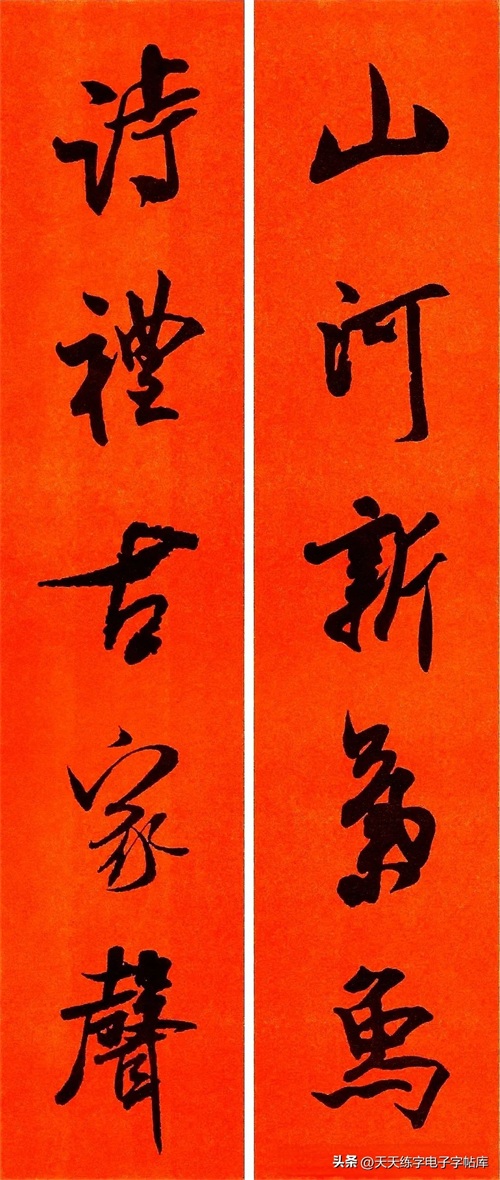 山河新氣象
詩禮古家聲
头条 @天天练字电子字帖库